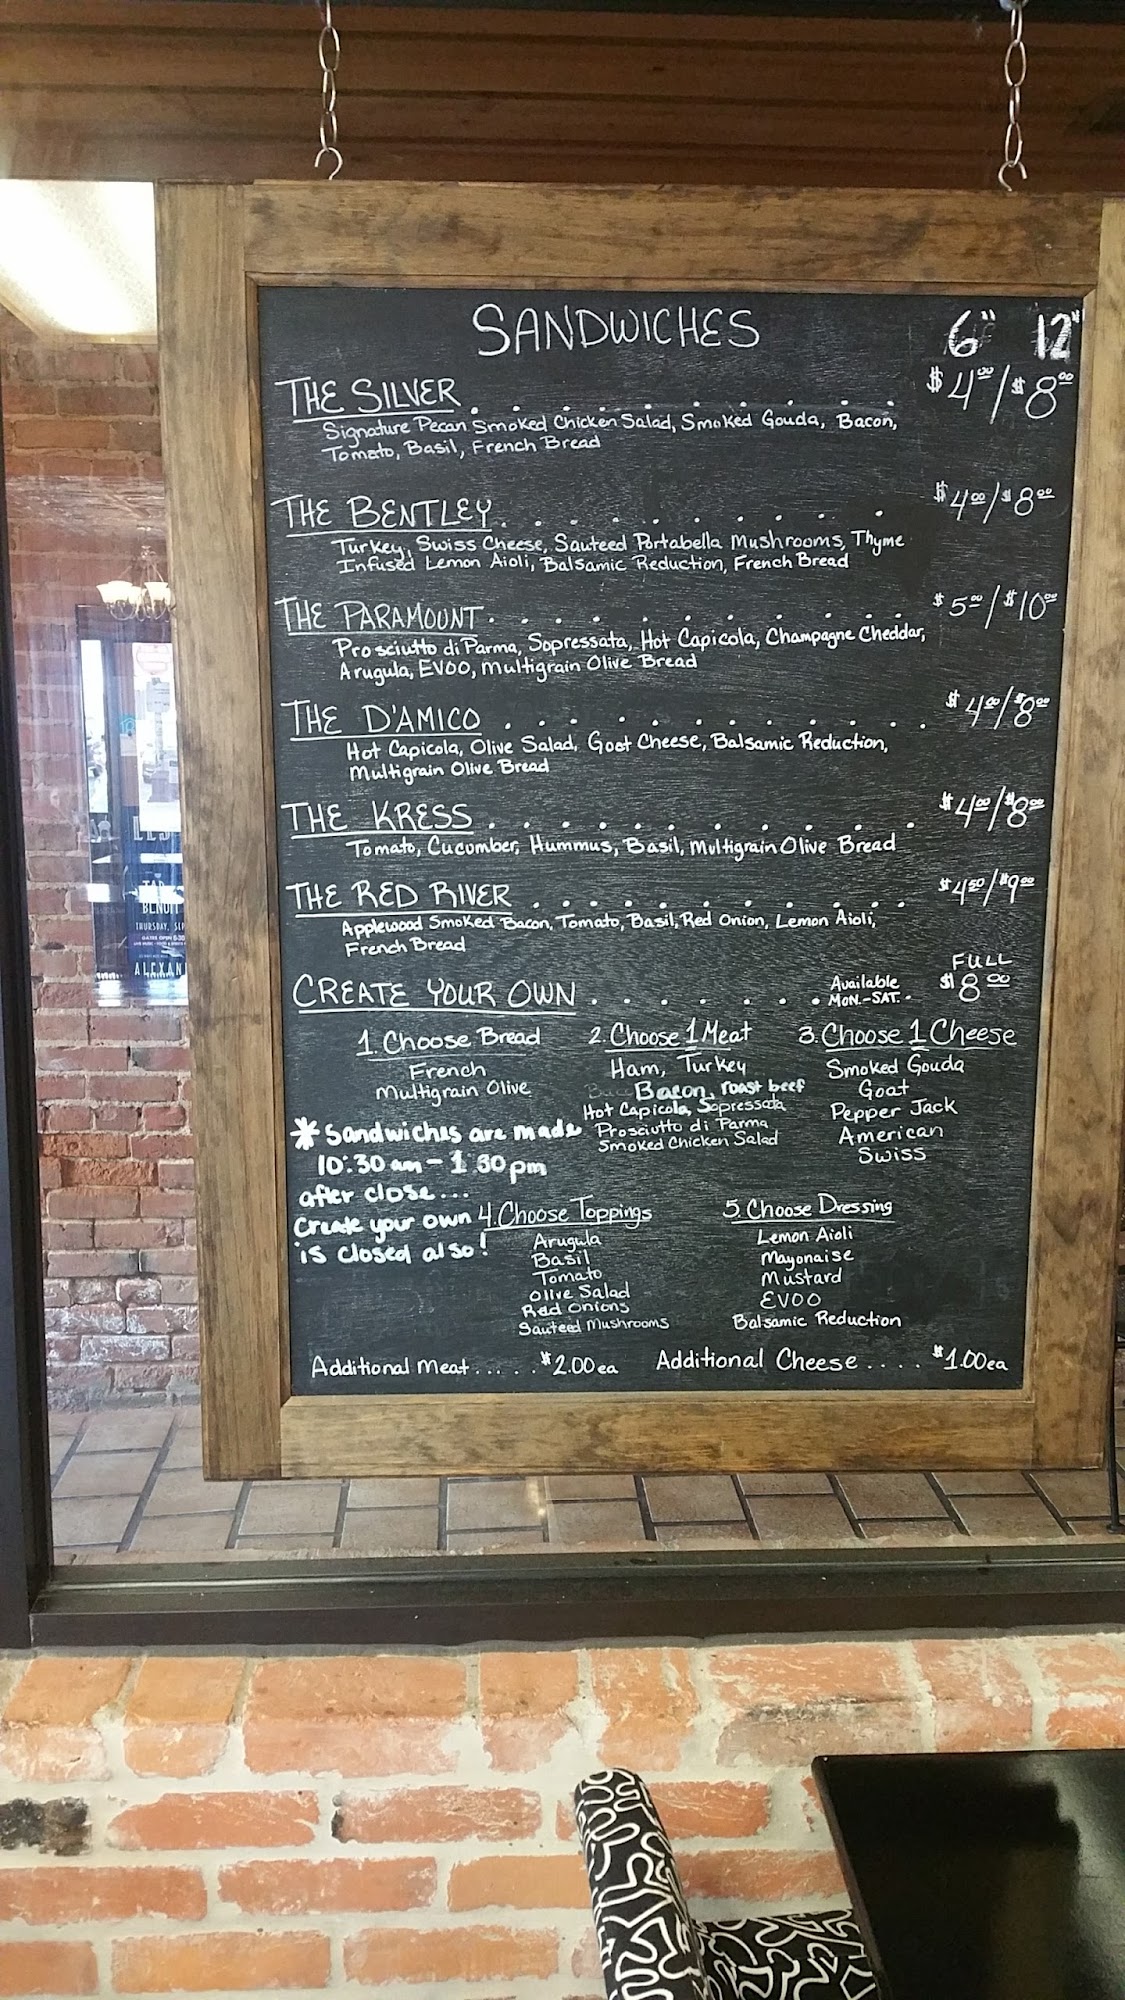 SANDWICHES 6" 12"
THE SILVER . . . . . . . . . . . $4.00/$8.00
Signature Pecan Smoked Chicken Salad, Smoked Gouda, Bacon,
Tomato, Basil, French Bread
THE BENTLEY . . . . . . . . . . . $4.00/$8.00
Turkey, Swiss Cheese, Sauteed Portabella Mushrooms, Thyme
Infused Lemon Aioli, Balsamic Reduction, French Bread
THE PARAMOUNT . . . . . . . . . . . $5.00/$10.00
Prosciutto di Parma, Sopressata, Hot Capicola, Champagne Cheddar,
Arugula, EVOO, Multigrain Olive Bread
THE D'AMICO . . . . . . . . . . . . $4.00/$8.00
Hot Capicola, Olive Salad, Goat Cheese, Balsamic Reduction,
Multigrain Olive Bread
THE KRESS . . . . . . . . . . . $4.00/$8.00
Tomato, Cucumber, Hummus, Basil, Multigrain Olive Bread
THE RED RIVER . . . . . . . . . . $4.50/$9.00
Applewood Smoked Bacon, Tomato, Basil, Red Onion, Lemon Aioli,
French Bread
FULL
CREATE YOUR OWN . . . . . . . Available MON.-SAT. . $8.00
1. Choose Bread
French
Multigrain Olive
2. Choose 1 Meat
Ham, Turkey
Bacon, roast beef
Hot Capicola, Sopressata
Prosciutto di Parma
Smoked Chicken Salad
3. Choose 1 Cheese
Smoked Gouda
Goat
Pepper Jack
American
Swiss
* Sandwiches are made
10:30 am - 1:30 pm
after close...
Create your own
is closed also!
4. Choose Toppings
Arugula
Basil
Tomato
Olive Salad
Red Onions
Sauteed Mushrooms
5. Choose Dressing
Lemon Aioli
Mayonaise
Mustard
EVOO
Balsamic Reduction
Additional Meat . . . . . $2.00 ea Additional Cheese . . . . $1.00 ea
BENOIT
THURSDAY, SEP
ALEXAN